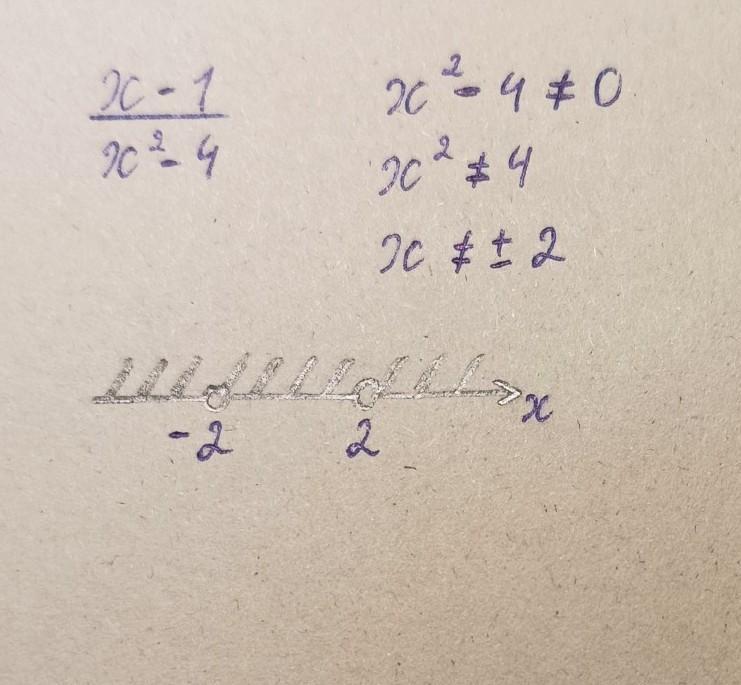 x - 1
x² - 4
x² - 4 ≠ 0
x² ≠ 4
x ≠ ± 2
x
-2 2